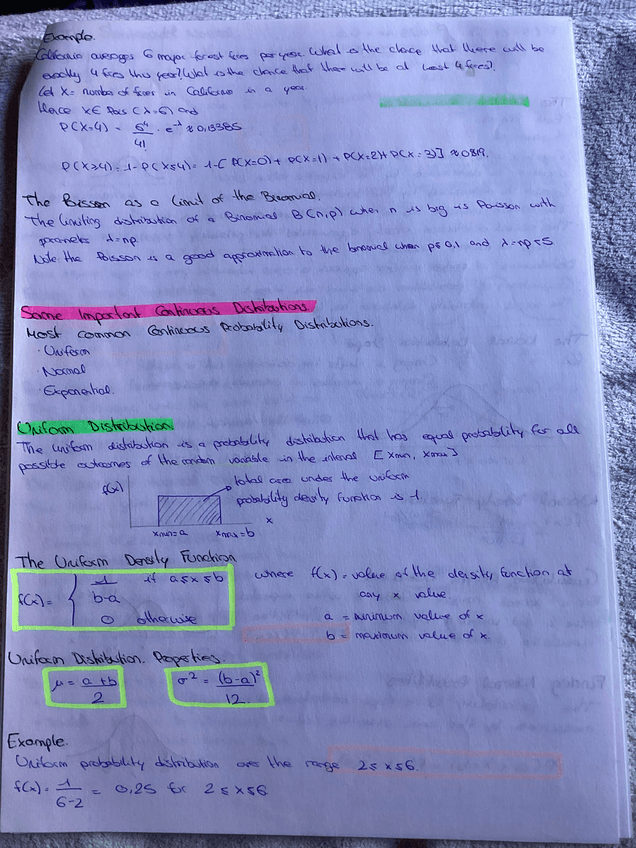 Example.
California averages 6 major forest fires per year. What is the chance that there will be
exactly 4 fires this year? What is the chance that there will be at least 4 fires?
Let X = number of fires in California in a year.
Hence X ∈ Pois (λ=6) and
P(X=4) = 6⁴/4! · e^-1 ≈ 0,13385
P(X≥4) = 1-P(X≤4) = 1-[P(X=0) + P(X=1) + P(X=2)+ P(X=3)] ≈ 0.819.
The Poisson as a Limit of the Binomial.
The limiting distribution of a Binomial B(n,p) when n is big is Poisson with
parameter λ=np.
Note the Poisson is a good approximation to the binomial when p≤0,1 and λ=np≤5
Some Important Continuous Distributions
Most common Continuous Probability Distributions.
· Uniform
· Normal
· Exponential.
Uniform Distribution
The uniform distribution is a probability distribution that has equal probability for all
possible outcomes of the random variable in the interval [xmin, xmax]
f(x)
total area under the uniform
probability density function is 1.
x
xmin=a xmax=b
The Uniform Density Function
f(x)= { 1/(b-a) if a≤x≤b
0 otherwise
where f(x) = value of the density function at
any x value
a = minimum value of x
b = maximum value of x
Uniform Distribution. Properties.
μ = (a+b)/2 σ² = (b-a)²/12
Example.
Uniform probability distribution over the range 2≤x≤6.
f(x)= 1/(6-2) = 0,25 for 2≤x≤6